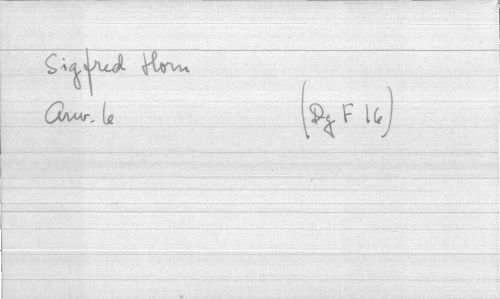 Sigfred Horn
Anv. 6 (Dg F 16)